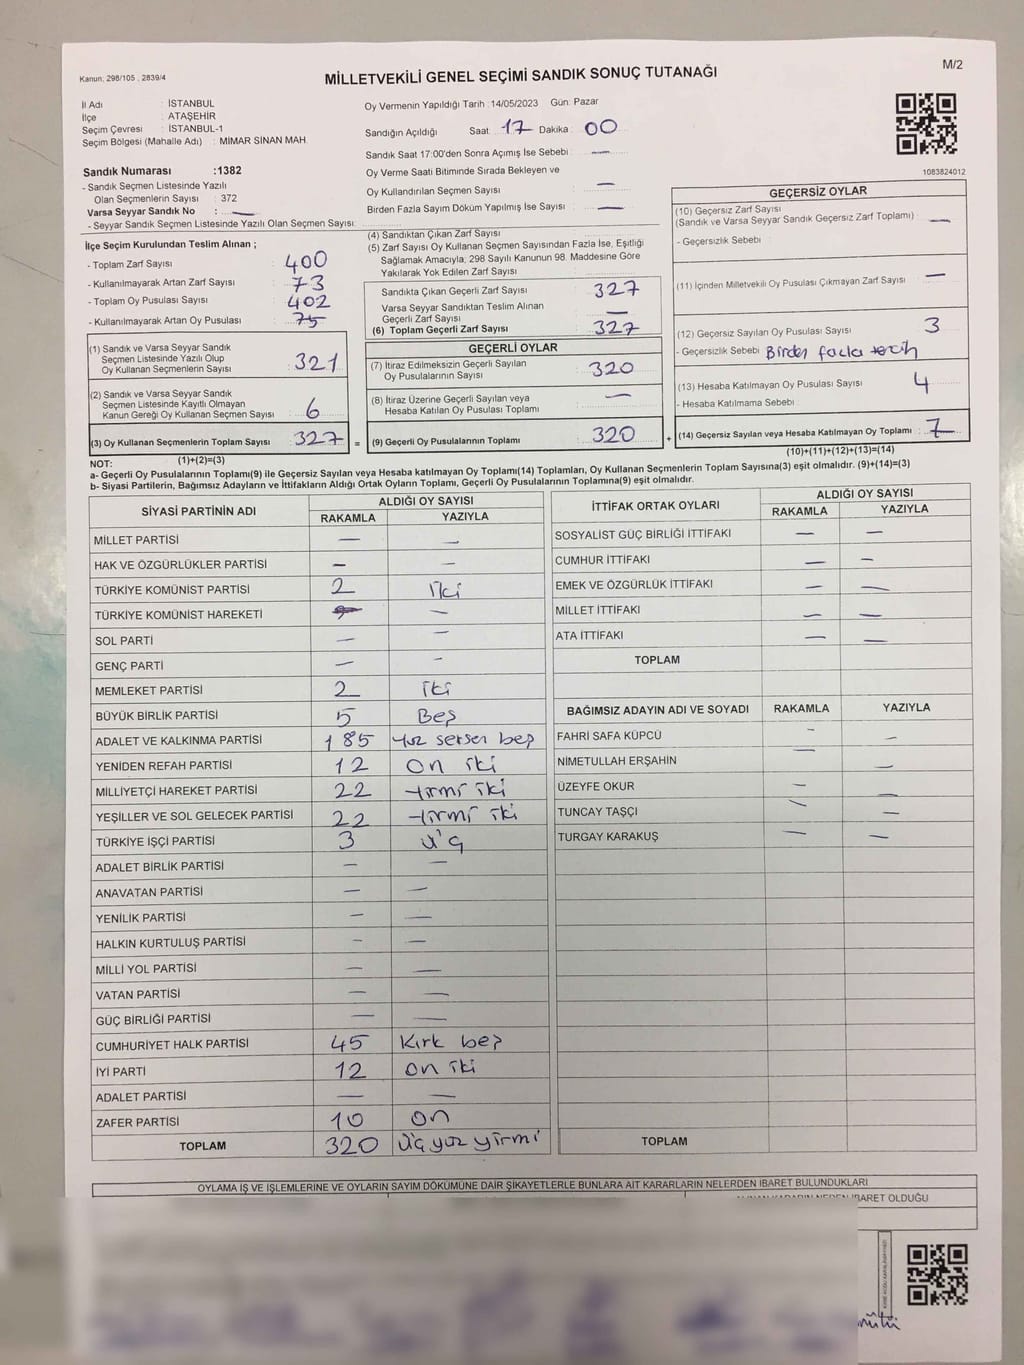 Kanun; 298/105 , 2839/4
MİLLETVEKİLİ GENEL SEÇİMİ SANDIK SONUÇ TUTANAĞI
M/2
İl Adı : İSTANBUL
İlçe : ATAŞEHİR
Seçim Çevresi : İSTANBUL-1
Seçim Bölgesi (Mahalle Adı) : MİMAR SİNAN MAH
Oy Vermenin Yapıldığı Tarih :14/05/2023 Gün: Pazar
Sandığın Açıldığı Saat: 17 Dakika: 00
Sandık Saat 17:00'den Sonra Açımış İse Sebebi : —
Oy Verme Saati Bitiminde Sırada Bekleyen ve
Oy Kullandırılan Seçmen Sayısı : —
Birden Fazla Sayım Döküm Yapılmış İse Sayısı : —
Sandık Numarası :1382
- Sandık Seçmen Listesinde Yazılı
Olan Seçmenlerin Sayısı : 372
Varsa Seyyar Sandık No : —
- Seyyar Sandık Seçmen Listesinde Yazılı Olan Seçmen Sayısı:
1083824012
İlçe Seçim Kurulundan Teslim Alınan ;
- Toplam Zarf Sayısı : 400
- Kullanılmayarak Artan Zarf Sayısı : 73
- Toplam Oy Pusulası Sayısı : 402
- Kullanılmayarak Artan Oy Pusulası : 75
(1) Sandık ve Varsa Seyyar Sandık
Seçmen Listesinde Yazılı Olup
Oy Kullanan Seçmenlerin Sayısı : 321
(2) Sandık ve Varsa Seyyar Sandık
Seçmen Listesinde Kayıtlı Olmayan
Kanun Gereği Oy Kullanan Seçmen Sayısı : 6
(3) Oy Kullanan Seçmenlerin Toplam Sayısı : 327 =
(1)+(2)=(3)
(4) Sandıktan Çıkan Zarf Sayısı
(5) Zarf Sayısı Oy Kullanan Seçmen Sayısından Fazla İse, Eşitliği
Sağlamak Amacıyla, 298 Sayılı Kanunun 98. Maddesine Göre
Yakılarak Yok Edilen Zarf Sayısı :
Sandıkta Çıkan Geçerli Zarf Sayısı : 327
Varsa Seyyar Sandıktan Teslim Alınan
Geçerli Zarf Sayısı
(6) Toplam Geçerli Zarf Sayısı : 327
GEÇERLİ OYLAR
(7) İtiraz Edilmeksizin Geçerli Sayılan
Oy Pusulalarının Sayısı : 320
(8) İtiraz Üzerine Geçerli Sayılan veya
Hesaba Katılan Oy Pusulası Toplamı : —
(9) Geçerli Oy Pusulalarının Toplamı : 320 +
GEÇERSİZ OYLAR
(10) Geçersiz Zarf Sayısı
(Sandık ve Varsa Seyyar Sandık Geçersiz Zarf Toplamı) : —
- Geçersizlik Sebebi :
(11) İçinden Milletvekili Oy Pusulası Çıkmayan Zarf Sayısı : —
(12) Geçersiz Sayılan Oy Pusulası Sayısı : 3
- Geçersizlik Sebebi : Birden fazla tercih
(13) Hesaba Katılmayan Oy Pusulası Sayısı : 4
- Hesaba Katılmama Sebebi :
(14) Geçersiz Sayılan veya Hesaba Katılmayan Oy Toplamı : 7
(10)+(11)+(12)+(13)=(14)
NOT:
a- Geçerli Oy Pusulalarının Toplamı(9) ile Geçersiz Sayılan veya Hesaba katılmayan Oy Toplamı(14) Toplamları, Oy Kullanan Seçmenlerin Toplam Sayısına(3) eşit olmalıdır. (9)+(14)=(3)
b- Siyasi Partilerin, Bağımsız Adayların ve İttifakların Aldığı Ortak Oyların Toplamı, Geçerli Oy Pusulalarının Toplamına(9) eşit olmalıdır.
SİYASİ PARTİNİN ADI
ALDIĞI OY SAYISI
RAKAMLA YAZIYLA
MİLLET PARTİSİ — —
HAK VE ÖZGÜRLÜKLER PARTİSİ — —
TÜRKİYE KOMÜNİST PARTİSİ 2 İki
TÜRKİYE KOMÜNİST HAREKETİ —
SOL PARTİ — —
GENÇ PARTİ — —
MEMLEKET PARTİSİ 2 iki
BÜYÜK BİRLİK PARTİSİ 5 Beş
ADALET VE KALKINMA PARTİSİ 185 Yüz seksen beş
YENİDEN REFAH PARTİSİ 12 On iki
MİLLİYETÇİ HAREKET PARTİSİ 22 Yirmi iki
YEŞİLLER VE SOL GELECEK PARTİSİ 22 Yirmi iki
TÜRKİYE İŞÇİ PARTİSİ 3 Üç
ADALET BİRLİK PARTİSİ — —
ANAVATAN PARTİSİ — —
YENİLİK PARTİSİ — —
HALKIN KURTULUŞ PARTİSİ — —
MİLLİ YOL PARTİSİ — —
VATAN PARTİSİ — —
GÜÇ BİRLİĞİ PARTİSİ — —
CUMHURİYET HALK PARTİSİ 45 Kırk beş
İYİ PARTİ 12 on iki
ADALET PARTİSİ — —
ZAFER PARTİSİ 10 on
TOPLAM 320 Üç yüz yirmi
İTTİFAK ORTAK OYLARI
ALDIĞI OY SAYISI
RAKAMLA YAZIYLA
SOSYALİST GÜÇ BİRLİĞİ İTTİFAKI — —
CUMHUR İTTİFAKI — —
EMEK VE ÖZGÜRLÜK İTTİFAKI — —
MİLLET İTTİFAKI — —
ATA İTTİFAKI — —
TOPLAM
BAĞIMSIZ ADAYIN ADI VE SOYADI RAKAMLA YAZIYLA
FAHRİ SAFA KÜPCÜ — —
NİMETULLAH ERŞAHİN — —
ÜZEYFE OKUR — —
TUNCAY TAŞÇI — —
TURGAY KARAKUŞ — —
TOPLAM
OYLAMA İŞ VE İŞLEMLERİNE VE OYLARIN SAYIM DÖKÜMÜNE DAİR ŞİKAYETLERLE BUNLARA AİT KARARLARIN NELERDEN İBARET BULUNDUKLARI
İBARET OLDUĞU